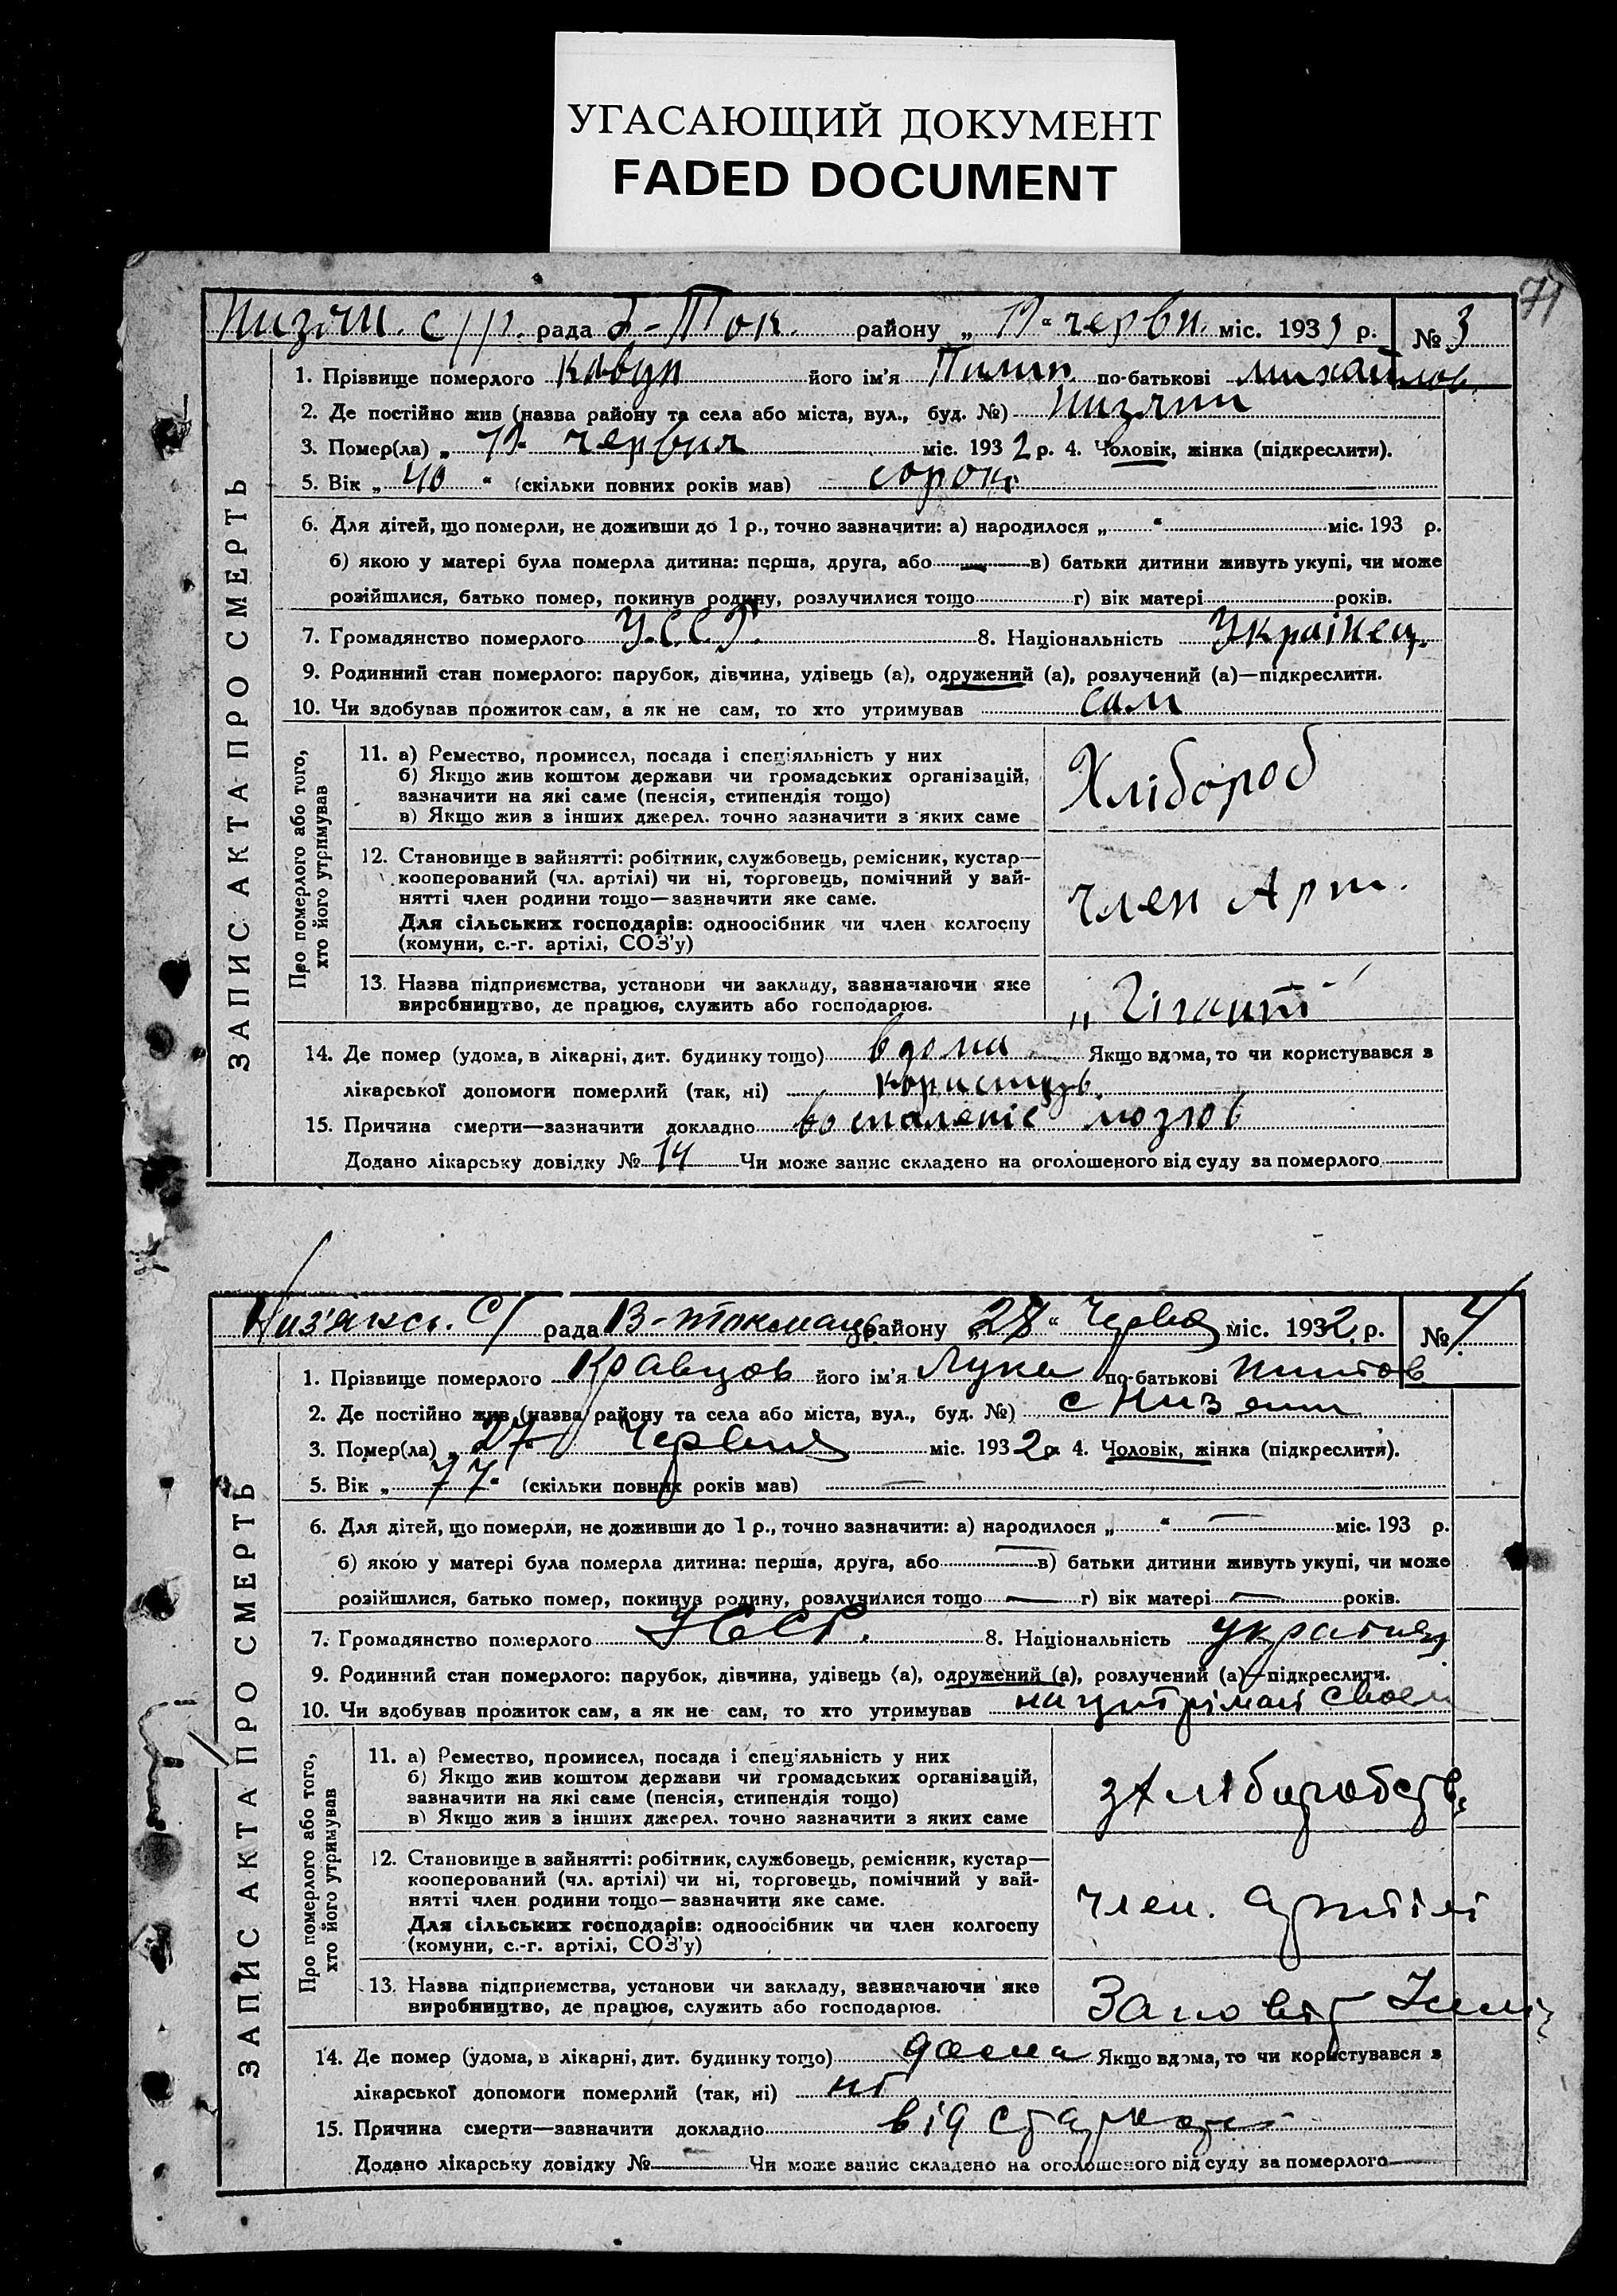 УГАСАЮЩИЙ ДОКУМЕНТ
FADED DOCUMENT
71
Низяни. с/р. рада В-Ток. району „19“ черви. міс. 193 р. № 3
ЗАПИС АКТА ПРО СМЕРТЬ
1. Прізвище померлого Кавун його ім'я Пилип по-батькові Михайлов.
2. Де постійно жив (назва району та села або міста, вул., буд. №) Низяни
3. Помер(ла) „19“ червня міс. 1932 р. 4. Чоловік, жінка (підкреслити).
5. Вік „40“ (скільки повних років мав) сорок
6. Для дітей, що померли, не доживши до 1 р., точно зазначити: а) народилося „ “ міс. 193 р.
б) якою у матері була померла дитина: перша, друга, або — в) батьки дитини живуть укупі, чи може
розійшлися, батько помер, покинув родину, розлучилися тощо г) вік матері років.
7. Громадянство померлого У.С.С.Р. 8. Національність Українец.
9. Родинний стан померлого: парубок, дівчина, удівець (а), одружений (а), розлучений (а)—підкреслити.
10. Чи здобував прожиток сам, а як не сам, то хто утримував сам
Про померлого або того, хто його утримував
11. а) Ремество, промисел, посада і спеціяльність у них
б) Якщо жив коштом держави чи громадських організацій,
зазначити на які саме (пенсія, стипендія тощо)
в) Якщо жив з інших джерел. точно зазначити з яких саме
Хлібороб
12. Становище в зайнятті: робітник, службовець, ремісник, кустар—
кооперований (чл. артілі) чи ні, торговець, помічний у зай-
нятті член родини тощо—зазначити яке саме.
Для сільських господарів: одноосібник чи член колгоспу
(комуни, с.-г. артілі, СОЗ'у)
член Арт.
13. Назва підприємства, установи чи закладу, зазначаючи яке
виробництво, де працює, служить або господарює.
„Гігант“
14. Де помер (удома, в лікарні, дит. будинку тощо) вдома Якщо вдома, то чи користувався з
лікарської допомоги померлий (так, ні) користув.
15. Причина смерти—зазначити докладно воспаленіє мозгов
Додано лікарську довідку № 14 Чи може запис складено на оголошеного від суду за померлого
Низянск. С/ рада В-токмацьк району „28“ Червня міс. 1932 р. № 4
ЗАПИС АКТА ПРО СМЕРТЬ
1. Прізвище померлого Кравцов його ім'я Лука по-батькові Титов
2. Де постійно жив (назва району та села або міста, вул., буд. №) с Низяни
3. Помер(ла) „27“ Червня міс. 1932 р. 4. Чоловік, жінка (підкреслити).
5. Вік „77“ (скільки повних років мав) —
6. Для дітей, що померли, не доживши до 1 р., точно зазначити: а) народилося „ “ — міс. 193 р.
б) якою у матері була померла дитина: перша, друга, або — в) батьки дитини живуть укупі, чи може
розійшлися, батько помер, покинув родину, розлучилися тощо — г) вік матері — років.
7. Громадянство померлого УССР. 8. Національність українец
9. Родинний стан померлого: парубок, дівчина, удівець (а), одружений (а), розлучений (а)—підкреслити.
10. Чи здобував прожиток сам, а як не сам, то хто утримував на утрімані своем
Про померлого або того, хто його утримував
11. а) Ремество, промисел, посада і спеціяльність у них
б) Якщо жив коштом держави чи громадських організацій,
зазначити на які саме (пенсія, стипендія тощо)
в) Якщо жив з інших джерел. точно зазначити з яких саме
12. Становище в зайнятті: робітник, службовець, ремісник, кустар—
кооперований (чл. артілі) чи ні, торговець, помічний у зай-
нятті член родини тощо—зазначити яке саме.
Для сільських господарів: одноосібник чи член колгоспу
(комуни, с.-г. артілі, СОЗ'у)
член. артілі
13. Назва підприємства, установи чи закладу, зазначаючи яке
виробництво, де працює, служить або господарює.
Заповіт Ілліч
14. Де помер (удома, в лікарні, дит. будинку тощо) дома Якщо вдома, то чи користувався з
лікарської допомоги померлий (так, ні) ні
15. Причина смерти—зазначити докладно від старості
Додано лікарську довідку № — Чи може запис складено на оголошеного від суду за померлого —